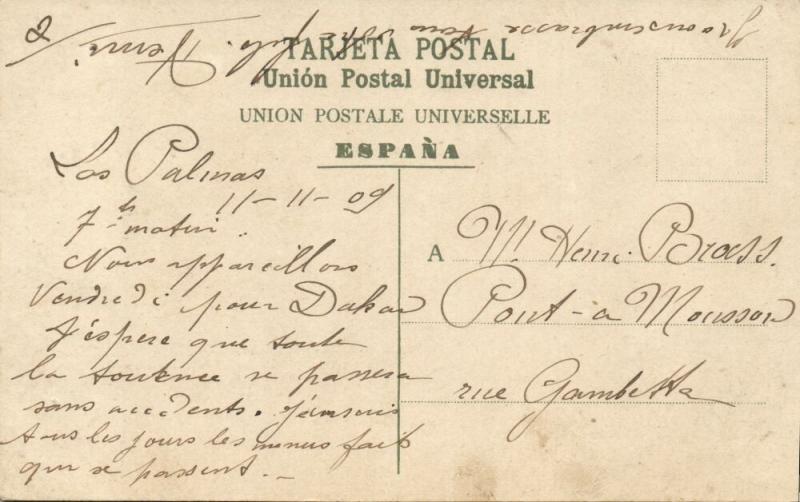 TARJETA POSTAL
Unión Postal Universal
UNION POSTALE UNIVERSELLE
ESPAÑA
Las Palmas
11-11-09
7h matin.
Nous appareillons
Vendredi pour Dakar
J'éspere que toute
la se passera
sans accidents. J'écrirais
tous les jours les menus faits
qui se passent. -
A Mr. Henri Bross.
Pont-a Mousson
rue Gambetta
Je